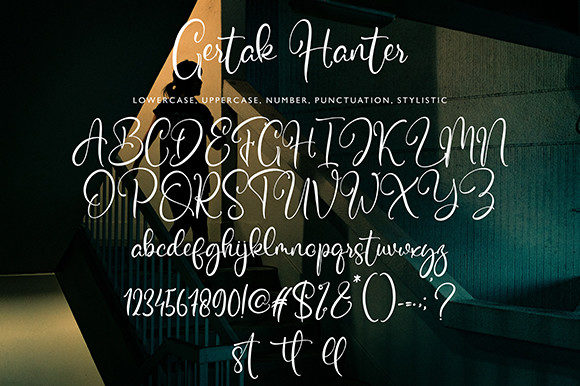 Gertak Hanter
LOWERCASE, UPPERCASE, NUMBER, PUNCTUATION, STYLISTIC
ABCDEFGHIJKLMN
OPQRSTUVWXYZ
abcdefghijklmnopqrstuvwxyz
1234567890!@#$%&*()-=.,;?
st tl ll